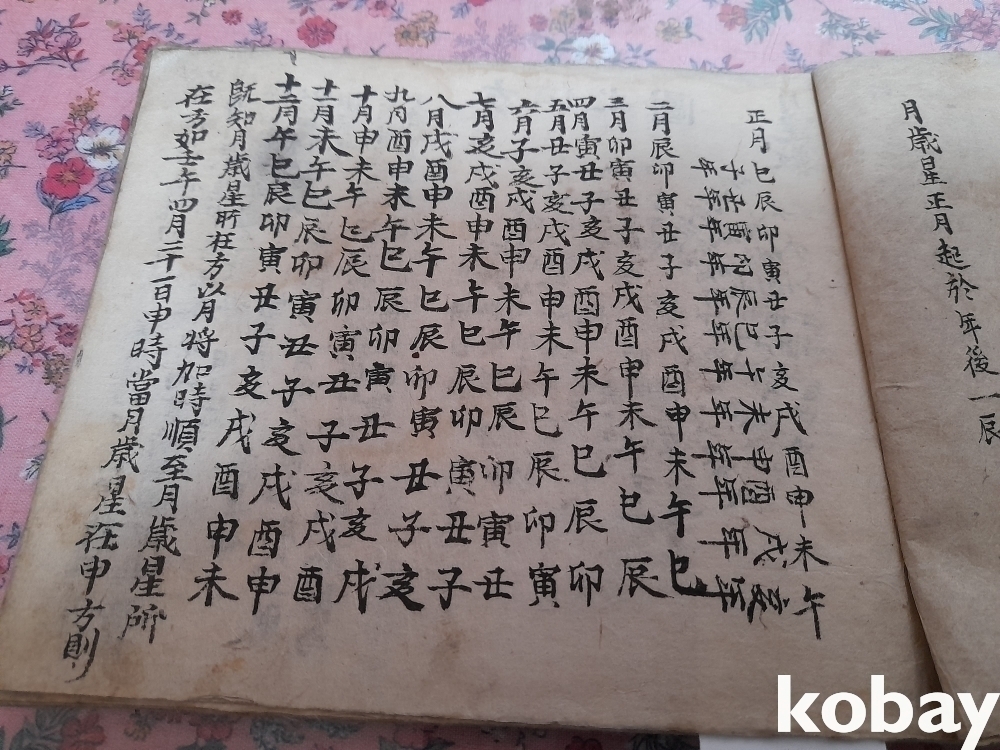 月歲星正月起於年後一辰
正月巳辰卯寅丑子亥戌酉申未午
子年丑年寅年卯年辰年巳年午年未年申年酉年戌年亥年
二月辰卯寅丑子亥戌酉申未午巳
三月卯寅丑子亥戌酉申未午巳辰
四月寅丑子亥戌酉申未午巳辰卯
五月丑子亥戌酉申未午巳辰卯寅
六月子亥戌酉申未午巳辰卯寅丑
七月亥戌酉申未午巳辰卯寅丑子
八月戌酉申未午巳辰卯寅丑子亥
九月酉申未午巳辰卯寅丑子亥戌
十月申未午巳辰卯寅丑子亥戌酉
十一月未午巳辰卯寅丑子亥戌酉申
十二月午巳辰卯寅丑子亥戌酉申未
既知月歲星所在方以月將加時順至月歲星所
在方如壬午四月二十一日申時當月歲星在申方則
kobay